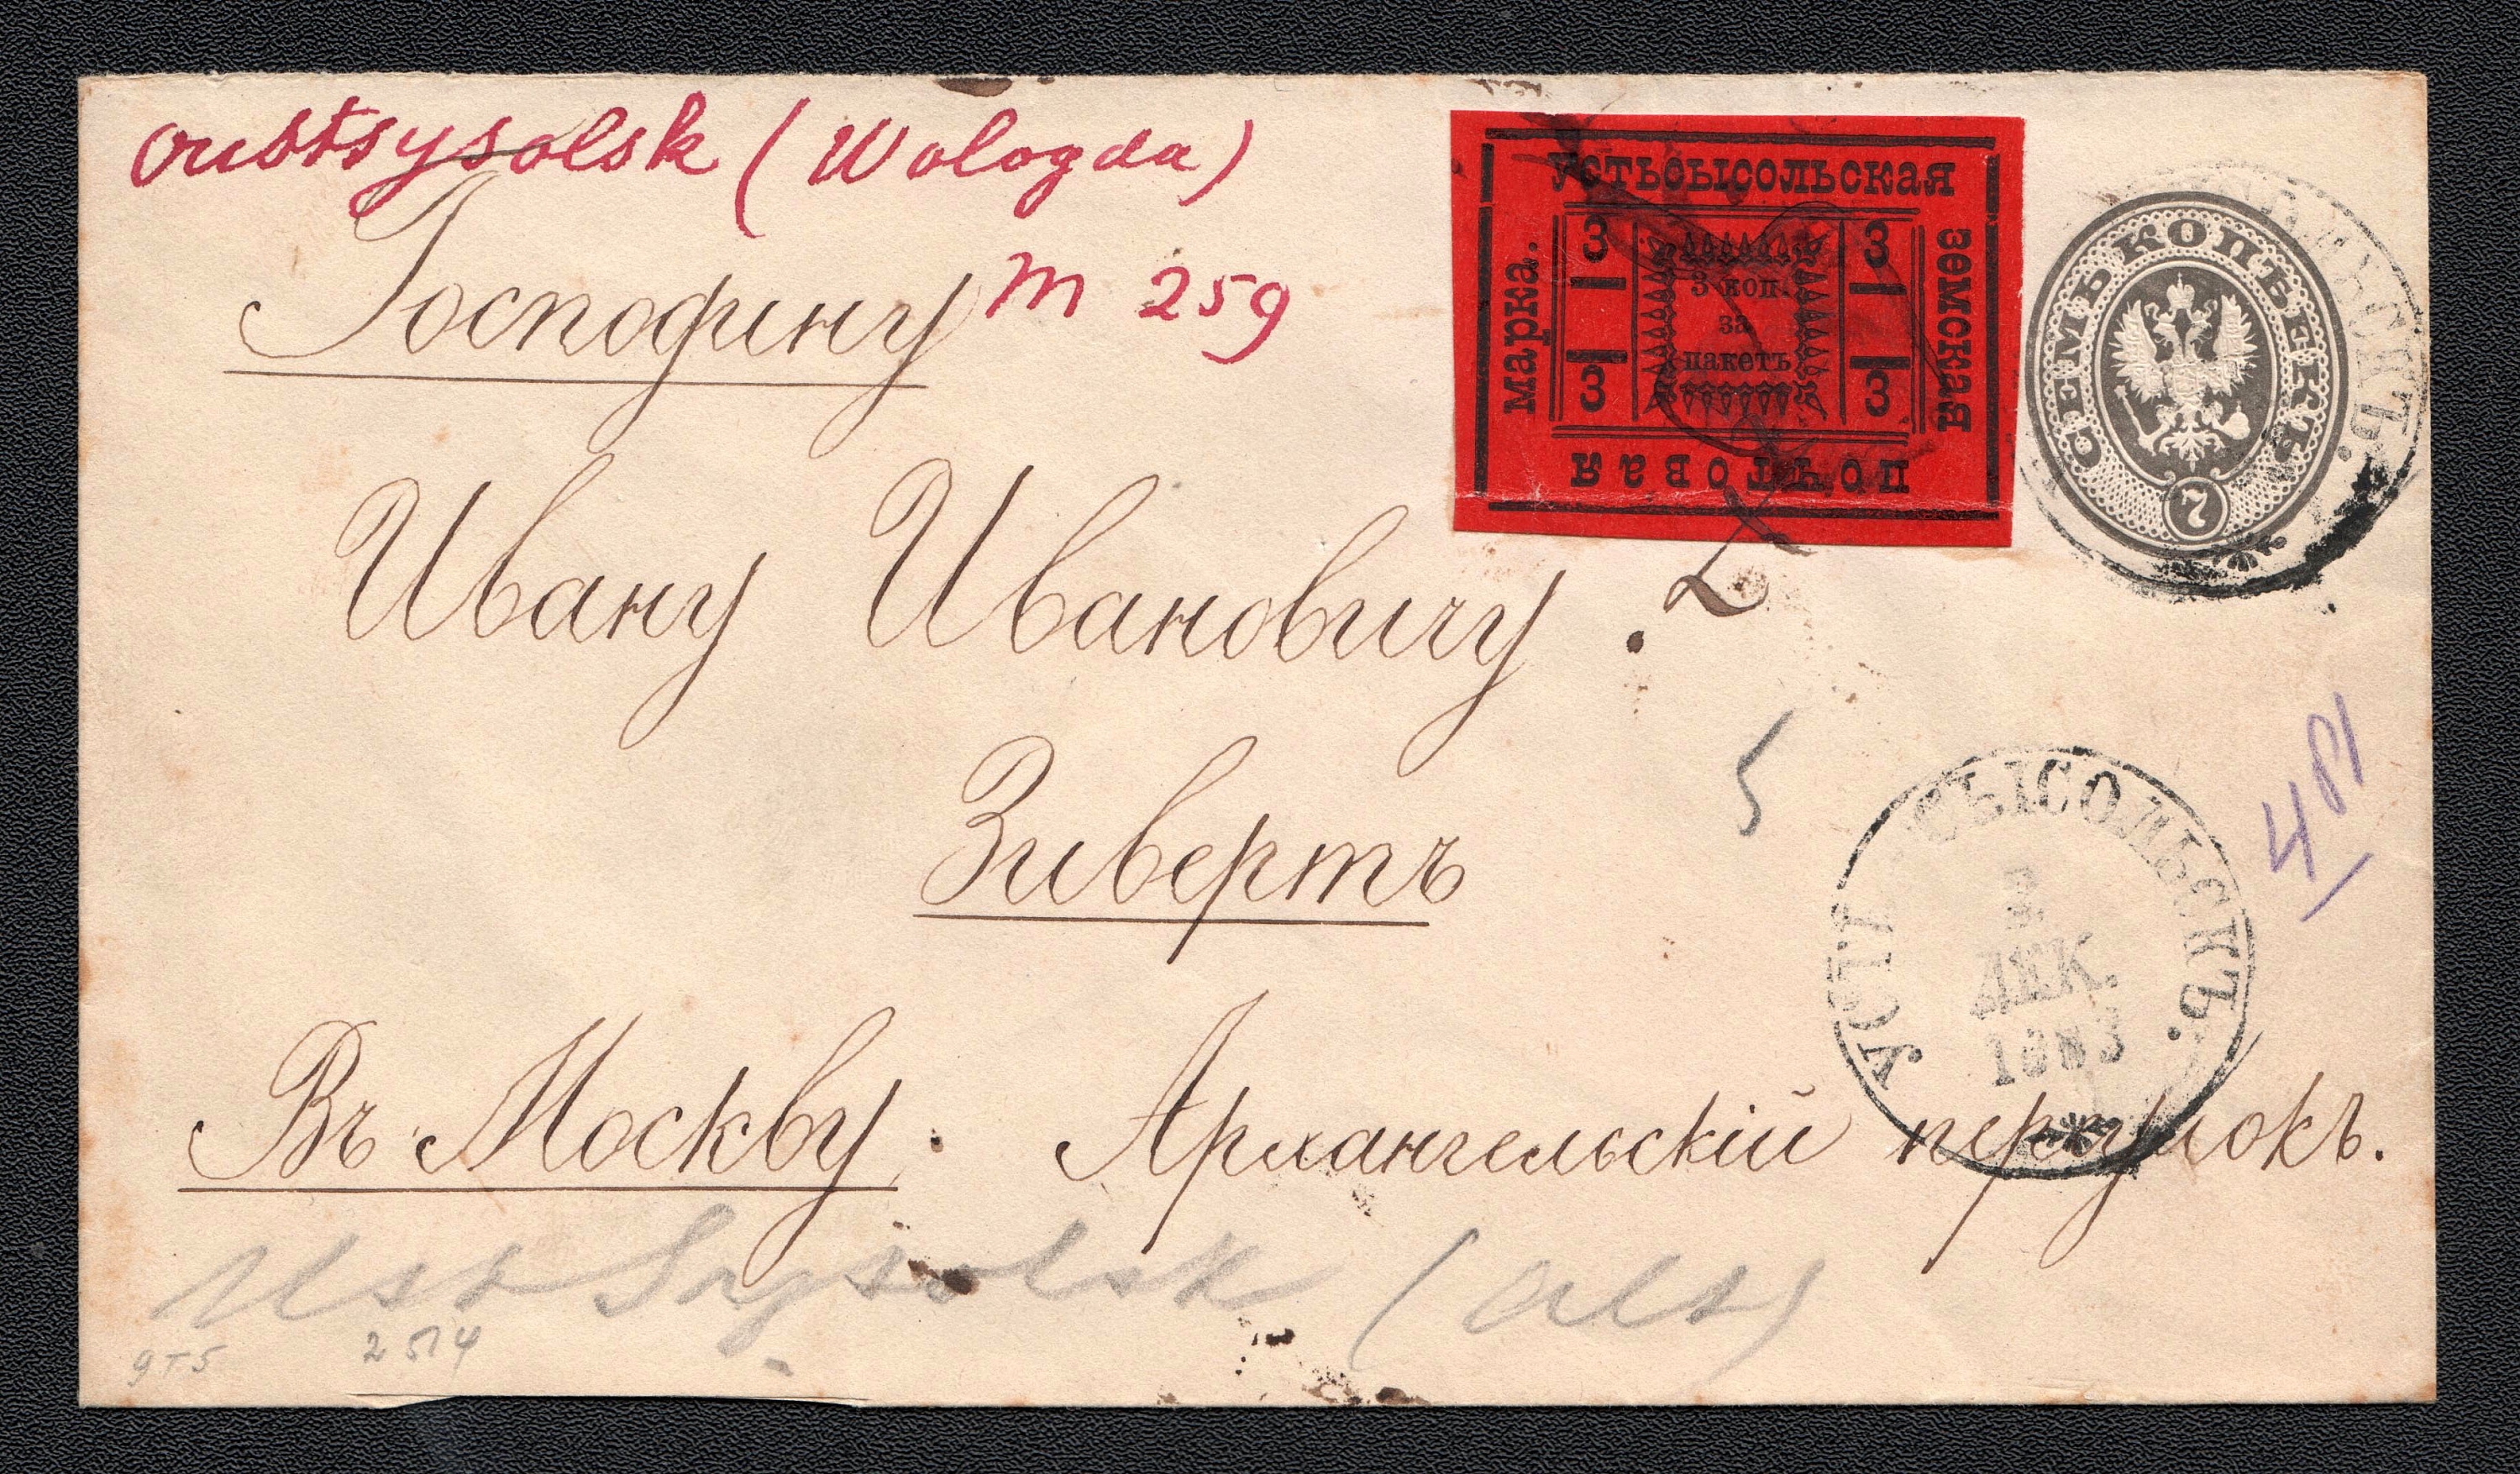 Oustsysolsk (Wologda)
m 259
Господину
Ивану Ивановичу
Зивертъ
Въ Москву. Архангельскій переулокъ.
Устьсысольская
земская
почтовая
марка.
3 3
3 коп.
за
пакетъ
3 3
СЕМЬ КОПѢЕКЪ
7
5
481
УСТЬ СЫСОЛЬСКЪ.
ДЕК.
1883
Ust Sysolsk (
2514